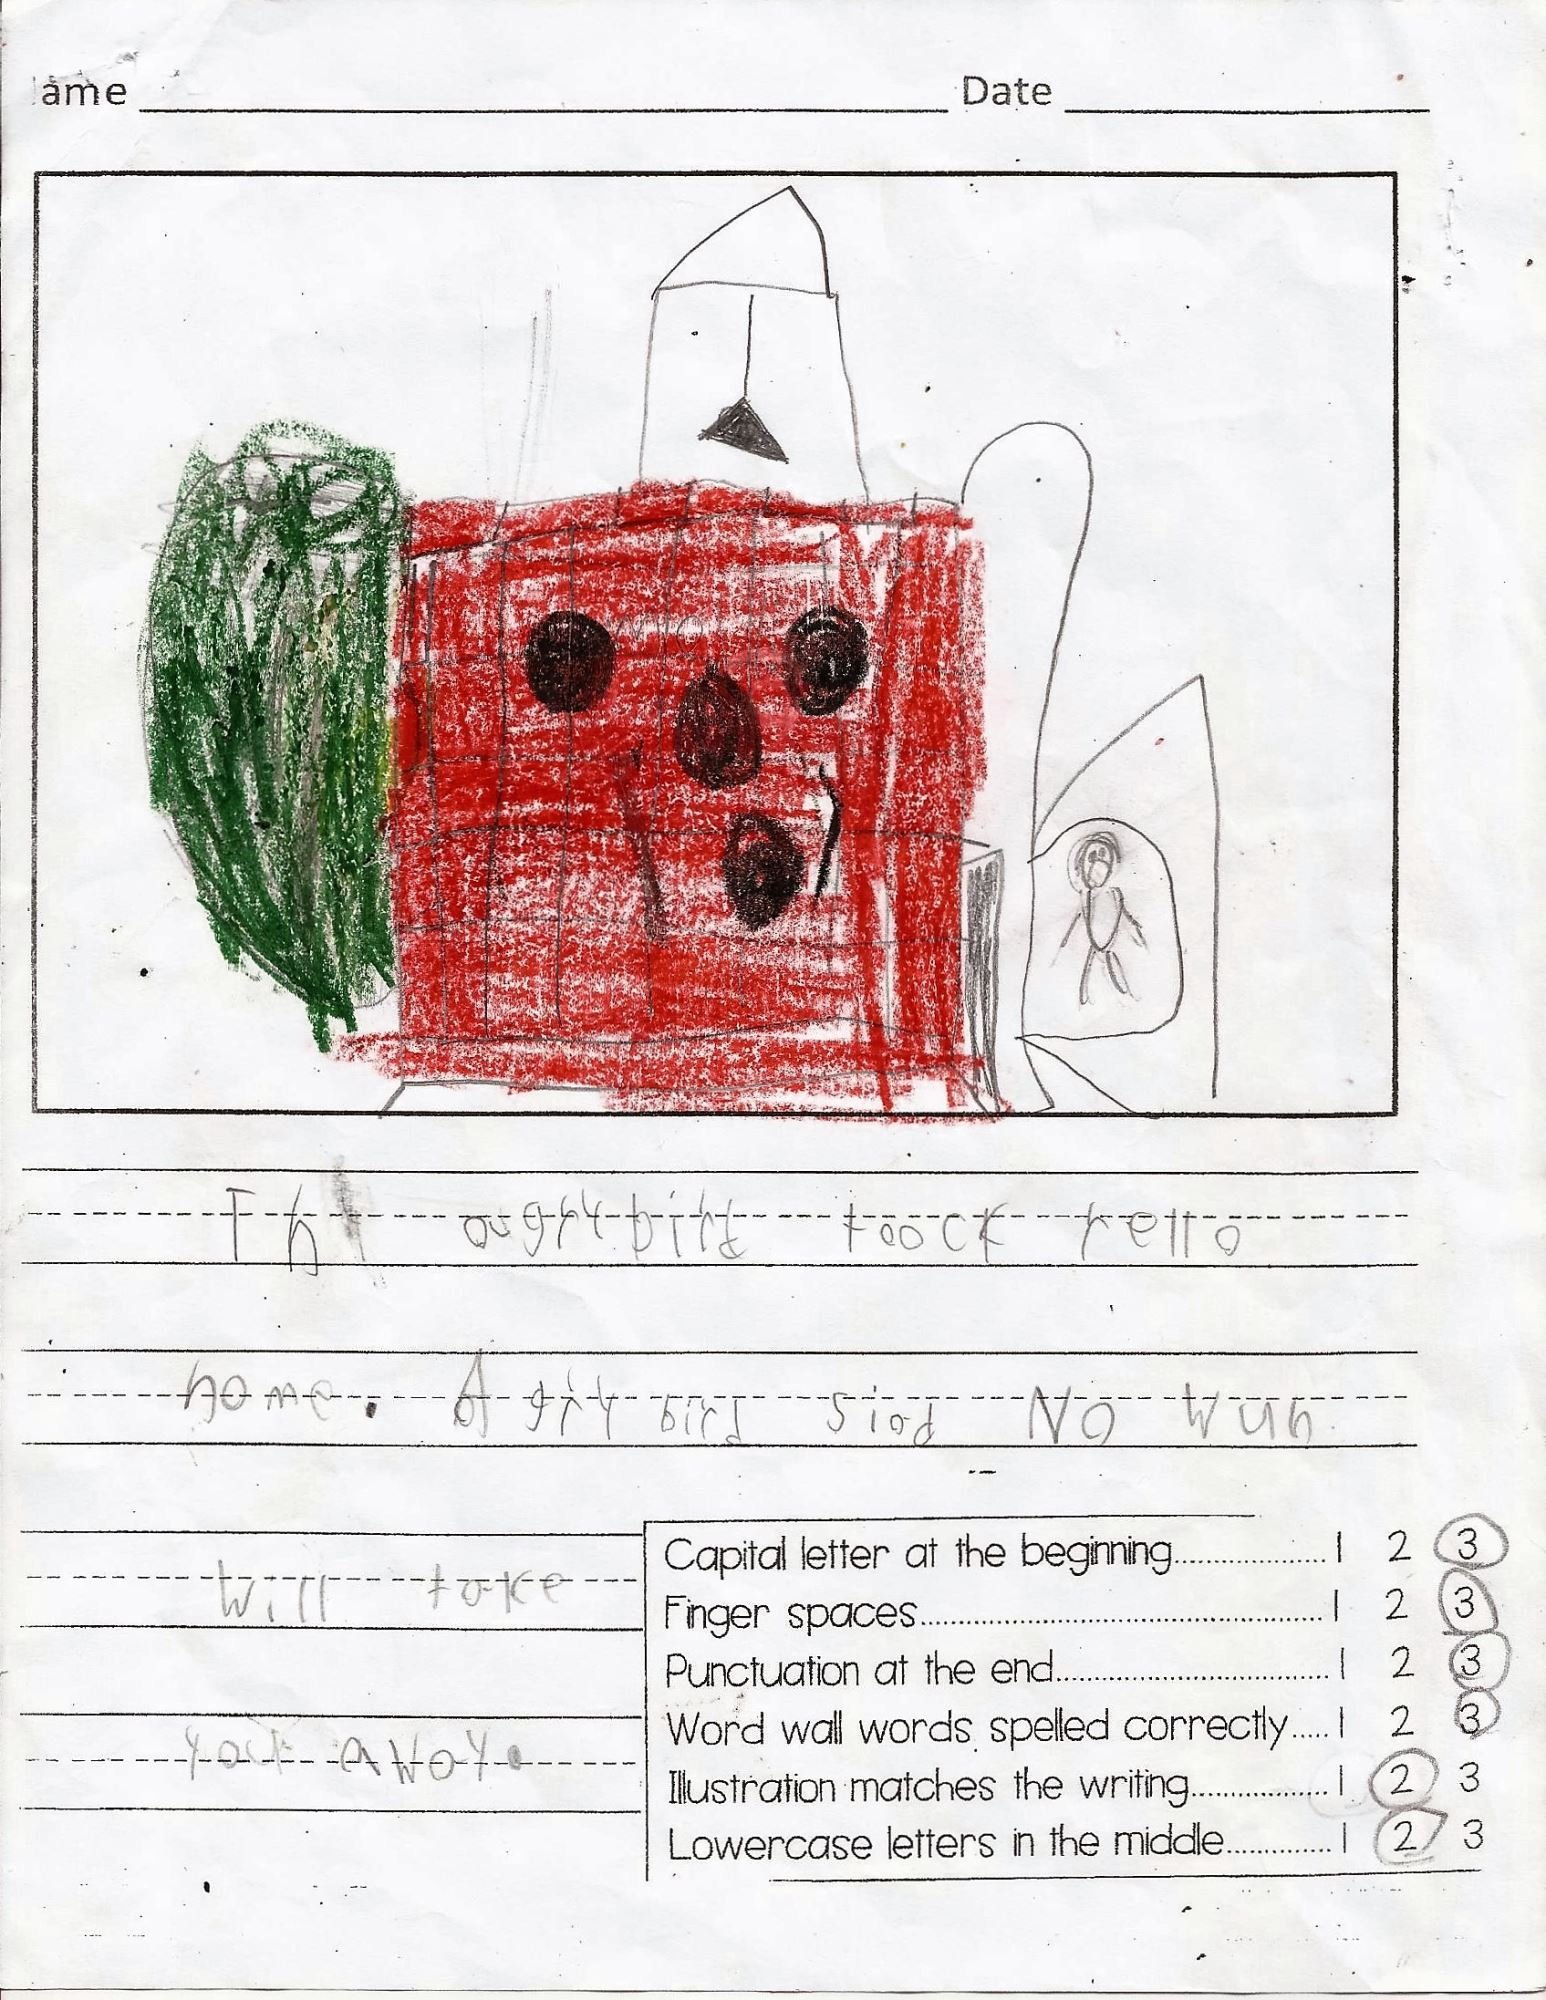 Name Date
Th angrybird toock rello
home. A grybird siad No wun
will take
you awoy.
Capital letter at the beginning 1 2 3
Finger spaces 1 2 3
Punctuation at the end 1 2 3
Word wall words spelled correctly 1 2 3
Illustration matches the writing 1 2 3
Lowercase letters in the middle 1 2 3